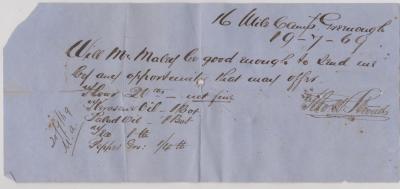 16 Mile Camp Greenough
19-7-69
Will Mr Maley be good enough to send me
by any opportunity that may offer.
Flour 20 lbs - not fine
Kerosene Oil - 1 Box
Salad Oil - 1 Bot
1 lb
Pepper 1/4 lb
20/7/69
M.a.